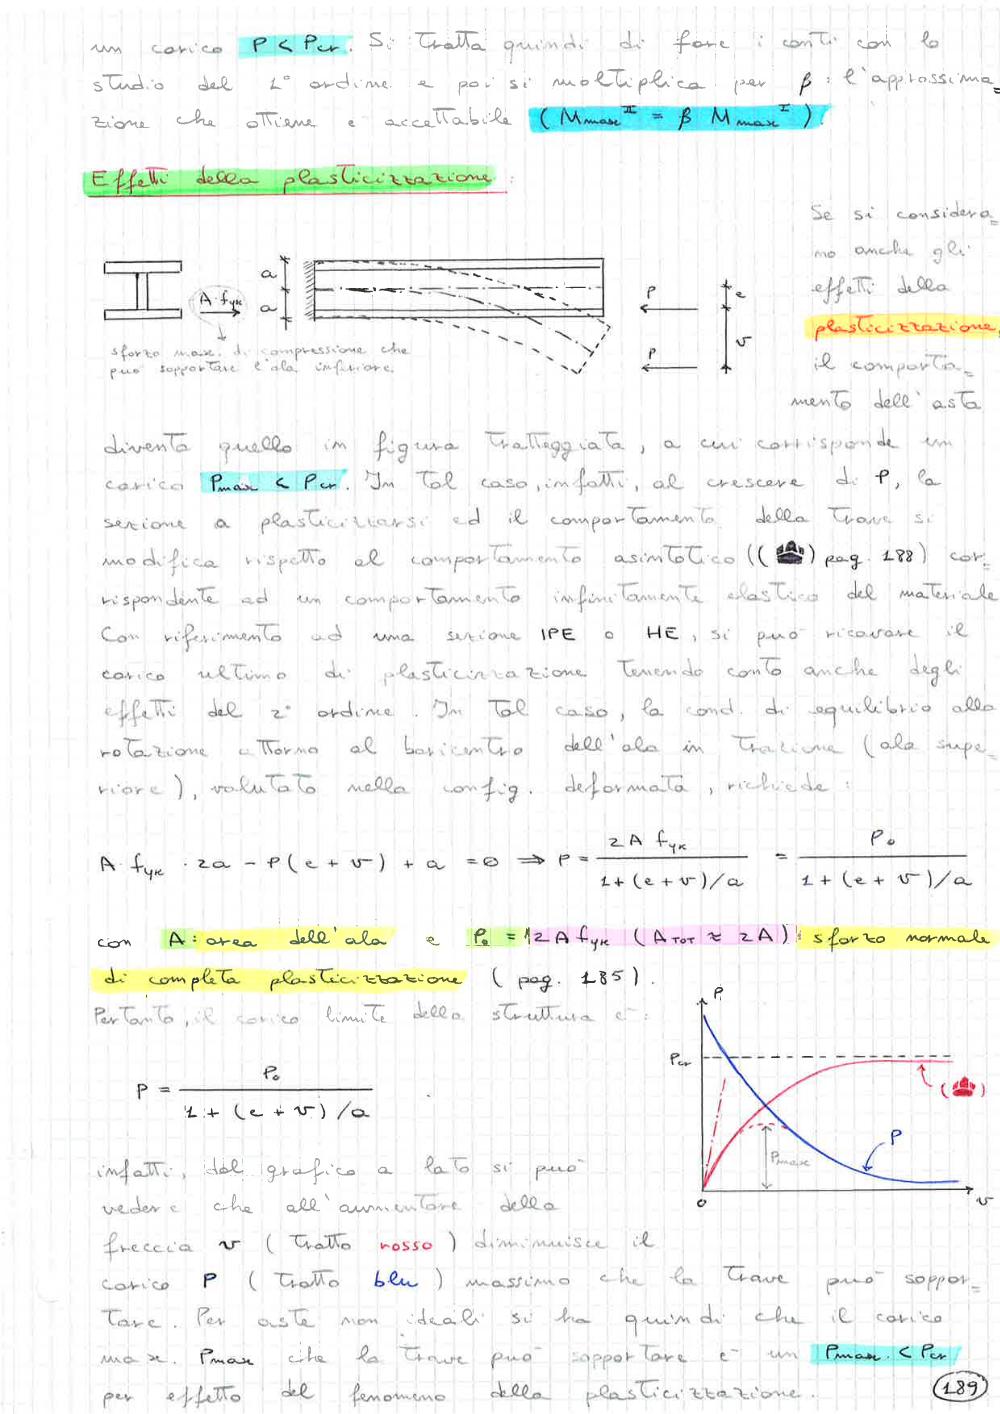 un carico P < Pcr. Si tratta quindi di fare i conti con lo
studio del 1° ordine e poi si moltiplica per β : l'approssima=
zione che ottiene è accettabile (Mmax^II = β Mmax^I).
Effetti della plasticizzazione :
Se si considera=
no anche gli
effetti della
plasticizzazione,
il comporta=
mento dell'asta
a
a
A·fyk
sforzo max. di compressione che
può sopportare l'ala inferiore.
P
P
e
v
diventa quello in figura tratteggiata, a cui corrisponde un
carico Pmax < Pcr. In tal caso, infatti, al crescere di P, la
sezione a plasticizzarsi ed il comportamento della trave si
modifica rispetto al comportamento asintotico (( ) pag. 188) cor=
rispondente ad un comportamento infinitamente elastico del materiale
Con riferimento ad una sezione IPE o HE, si può ricavare il
carico ultimo di plasticizzazione tenendo conto anche degli
effetti del 2° ordine. In tal caso, la cond. di equilibrio alla
rotazione attorno al baricentro dell'ala in trazione (ala supe=
riore), valutato nella config. deformata, richiede :
A·fyk · 2a - P(e + v) + a = 0 ⇒ P = 2A fyk / 1+(e+v)/a = P₀ / 1+(e+v)/a
con A: area dell'ala e P₀ = 2A fyk (ATOT ≈ 2A) : sforzo normale
di completa plasticizzazione (pag. 185).
Pertanto, il carico limite della struttura è :
P = P₀ / 1+(e+v)/a
P
Pcr
Pmax
P
0
v
infatti, dal grafico a lato si può
vedere che all'aumentare della
freccia v (tratto rosso) diminuisce il
carico P (tratto blu) massimo che la trave può soppor=
tare. Per aste non ideali si ha quindi che il carico
max. Pmax che la trave può sopportare è un Pmax < Pcr
per effetto del fenomeno della plasticizzazione.
189